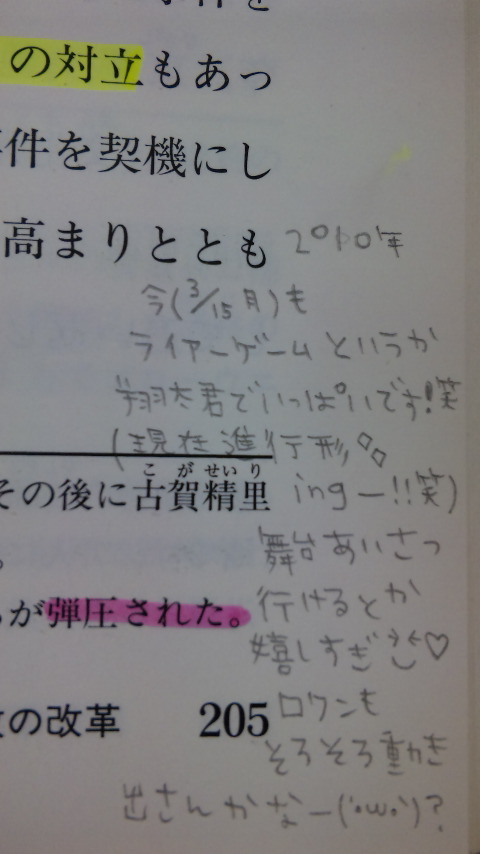 の対立もあっ
件を契機にし
高まりととも
2010年
今(3/15月)も
ライアーゲームというか
翔太君でいっぱいです!笑
(現在進行形
ing ー!!笑)
こがせいり
その後に古賀精里
。
舞台あいさつ
行けるとか
が弾圧された。
嬉しすぎ♡
の改革 205
ロワンも
そろそろ動き
出さんかなー(´・ω・`)?